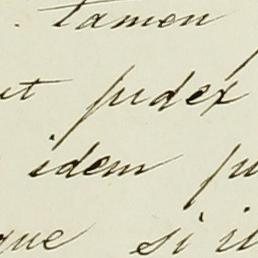 . tamen
ut judex
idem
que si